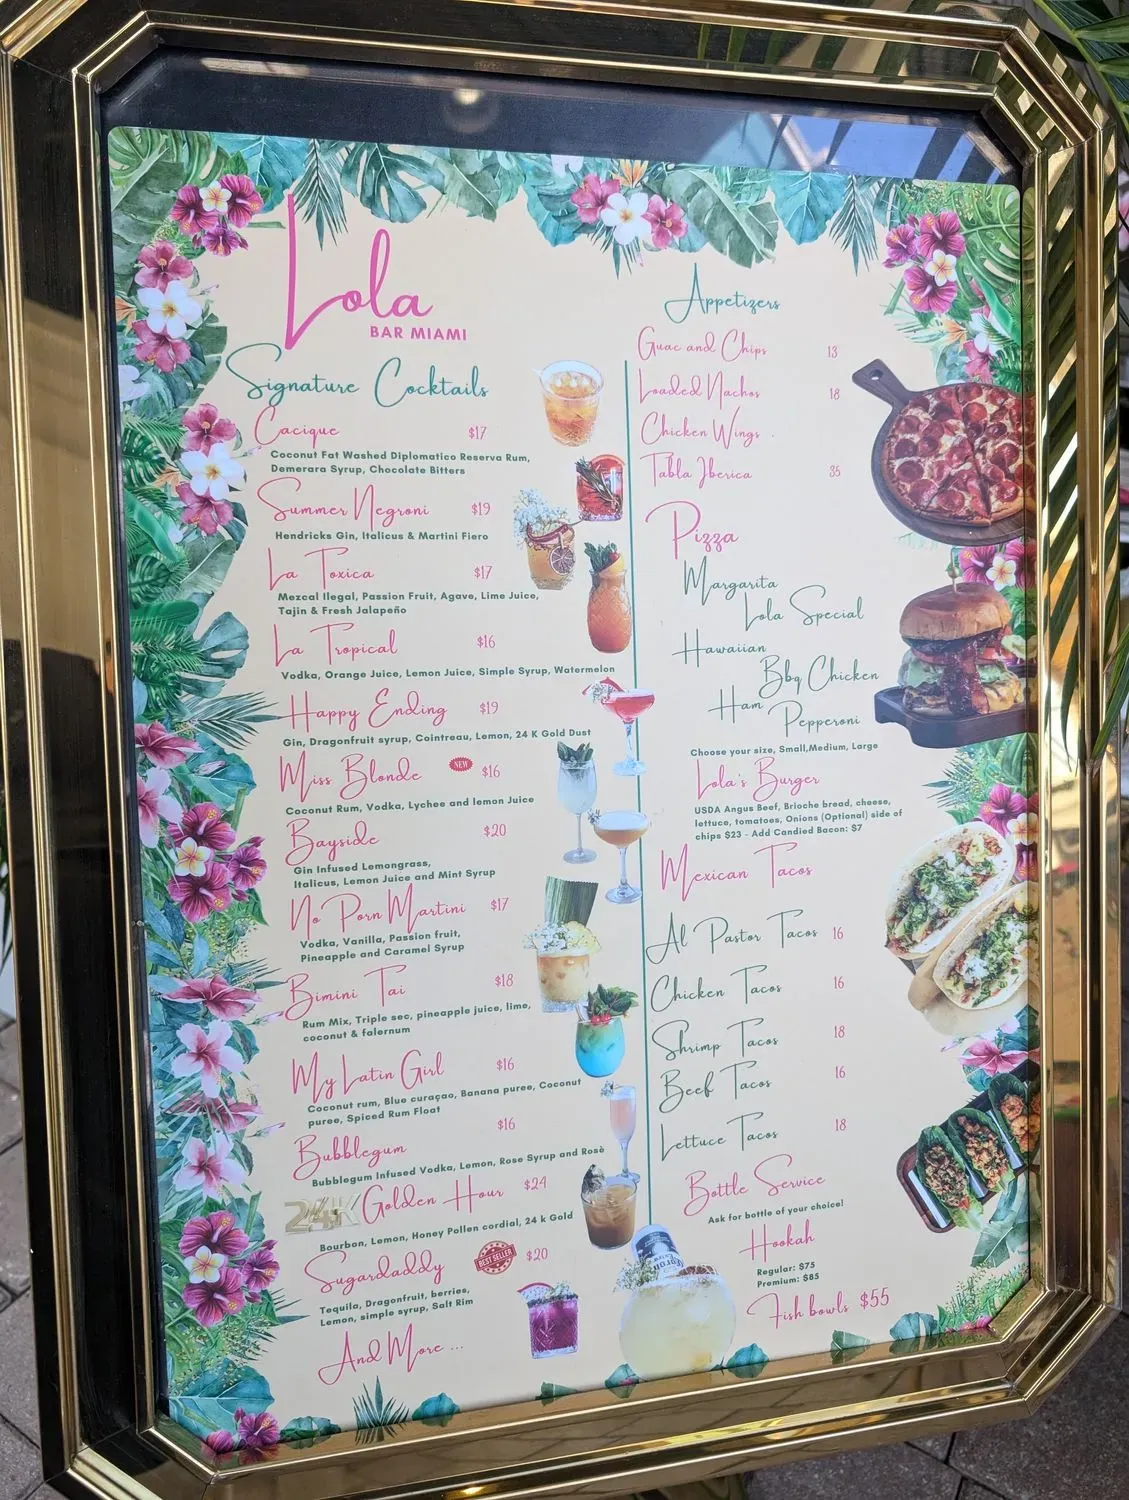 Lola
BAR MIAMI
Signature Cocktails
Cacique $17
Coconut Fat Washed Diplomatico Reserva Rum,
Demerara Syrup, Chocolate Bitters
Summer Negroni $19
Hendricks Gin, Italicus & Martini Fiero
La Toxica $17
Mezcal Ilegal, Passion Fruit, Agave, Lime Juice,
Tajin & Fresh Jalapeño
La Tropical $16
Vodka, Orange Juice, Lemon Juice, Simple Syrup, Watermelon
Happy Ending $19
Gin, Dragonfruit syrup, Cointreau, Lemon, 24 K Gold Dust
Miss Blonde NEW $16
Coconut Rum, Vodka, Lychee and lemon Juice
Bayside $20
Gin Infused Lemongrass,
Italicus, Lemon Juice and Mint Syrup
No Porn Martini $17
Vodka, Vanilla, Passion fruit,
Pineapple and Caramel Syrup
Bimini Tai $18
Rum Mix, Triple sec, pineapple juice, lime,
coconut & falernum
My Latin Girl $16
Coconut rum, Blue curaçao, Banana puree, Coconut
puree, Spiced Rum Float
Bubblegum $16
Bubblegum Infused Vodka, Lemon, Rose Syrup and Rosè
24K Golden Hour $24
Bourbon, Lemon, Honey Pollen cordial, 24 k Gold
Sugardaddy BEST SELLER $20
Tequila, Dragonfruit, berries,
Lemon, simple syrup, Salt Rim
And More ...
Appetizers
Guac and Chips 13
Loaded Nachos 18
Chicken Wings .
Tabla Iberica 35
Pizza
Margarita
Lola Special
Hawaiian
Bbq Chicken
Ham
Pepperoni
Choose your size, Small,Medium, Large
Lola's Burger
USDA Angus Beef, Brioche bread, cheese,
lettuce, tomatoes, Onions (Optional) side of
chips $23 - Add Candied Bacon: $7
Mexican Tacos
Al Pastor Tacos 16
Chicken Tacos 16
Shrimp Tacos 18
Beef Tacos 16
Lettuce Tacos 18
Bottle Service
Ask for bottle of your choice!
Hookah
Regular: $75
Premium: $85
Fish bowls $55